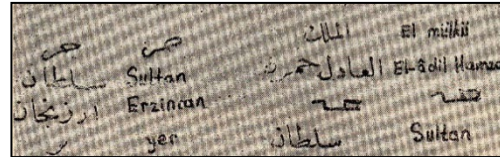 الملك El mülkü
سلطان Sultan العادل El-âdil
ارزنجان Erzincan
yer سلطان Sultan